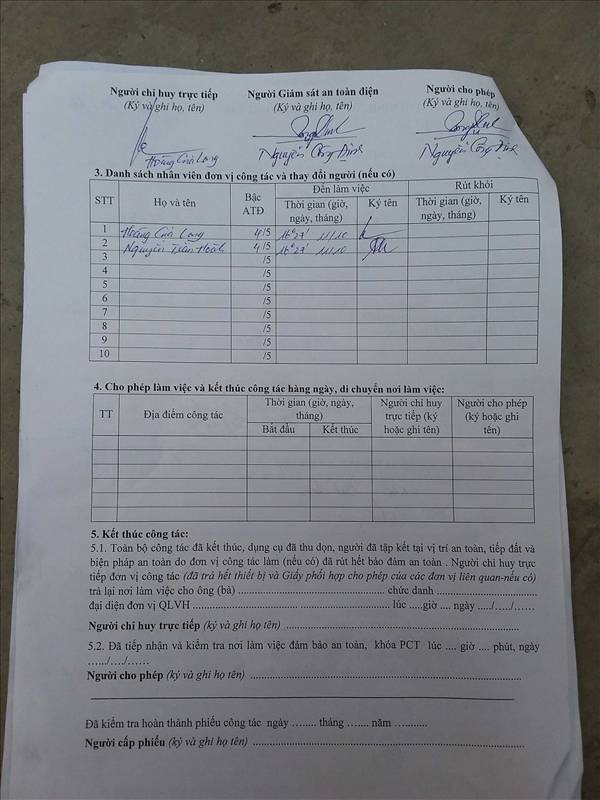 Người chỉ huy trực tiếp Người Giám sát an toàn điện Người cho phép
(Ký và ghi họ, tên) (Ký và ghi họ, tên) (Ký và ghi họ, tên)
Hoàng Cửu Long Nguyễn Công Định Nguyễn Công Định
3. Danh sách nhân viên đơn vị công tác và thay đổi người (nếu có)
STT Họ và tên Bậc ATĐ Đến làm việc Rút khỏi
Thời gian (giờ, ngày, tháng) Ký tên Thời gian (giờ, ngày, tháng) Ký tên
1 Hoàng Cửu Long 4/5 16h27' 11/10
2 Nguyễn Tiến 4/5 16h27' 11/10
3 /5
4 /5
5 /5
6 /5
7 /5
8 /5
9 /5
10 /5
4. Cho phép làm việc và kết thúc công tác hàng ngày, di chuyển nơi làm việc:
TT Địa điểm công tác Thời gian (giờ, ngày, tháng) Người chỉ huy trực tiếp (ký hoặc ghi tên) Người cho phép (ký hoặc ghi tên)
Bắt đầu Kết thúc
5. Kết thúc công tác:
5.1. Toàn bộ công tác đã kết thúc, dụng cụ đã thu dọn, người đã tập kết tại vị trí an toàn, tiếp đất và
biện pháp an toàn do đơn vị công tác làm (nếu có) đã rút hết bảo đảm an toàn . Người chỉ huy trực
tiếp đơn vị công tác (đã trả hết thiết bị và Giấy phối hợp cho phép của các đơn vị liên quan-nếu có)
trả lại nơi làm việc cho ông (bà) ........................................ chức danh ..............................
đại diện đơn vị QLVH ............................ .............................. lúc .....giờ .... ngày ...../...../......
Người chỉ huy trực tiếp (ký và ghi họ tên) ..............................................................
5.2. Đã tiếp nhận và kiểm tra nơi làm việc đảm bảo an toàn, khóa PCT lúc .... giờ .... phút, ngày
....../..../......
Người cho phép (ký và ghi họ tên) ..............................................................
Đã kiểm tra hoàn thành phiếu công tác ngày ........ tháng ....... năm ..........
Người cấp phiếu (ký và ghi họ tên) ..............................................................